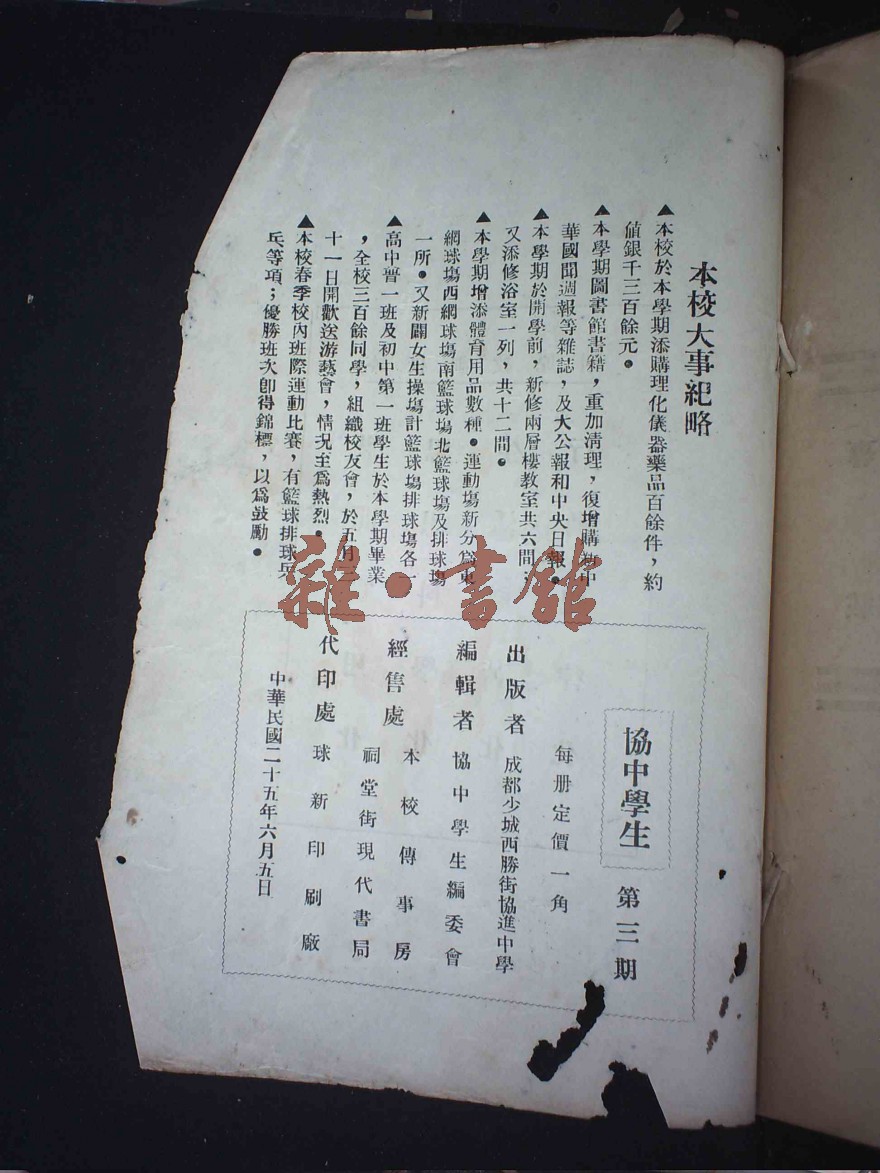 本校大事紀略
▲本校於本學期添購理化儀器藥品百餘件，約
值銀千三百餘元。
▲本學期圖書館書籍，重加清理，復增購新中
華國聞週報等雜誌，及大公報和中央日報。
▲本學期於開學前，新修兩層樓教室共六間，
又添修浴室一列，共十二間。
▲本學期增添體育用品數種。運動塲新分爲東
網球塲西網球塲南籃球塲北籃球塲及排球塲
一所。又新闢女生操塲計籃球塲排球塲各一
▲高中普一班及初中第一班學生於本學期畢業
，全校三百餘同學，組織校友會，於五月
十一日開歡送游藝會，情況至爲熱烈。
▲本校春季校內班際運動比賽，有籃球排球乒
乓等項；優勝班次卽得錦標，以爲鼓勵。
協中學生 第三期
每册定價一角
出版者 成都少城西勝街協進中學
編輯者 協中學生編委會
經售處 本校傳事房
祠堂街現代書局
代印處 球新印刷廠
中華民國二十五年六月五日
雜·書館